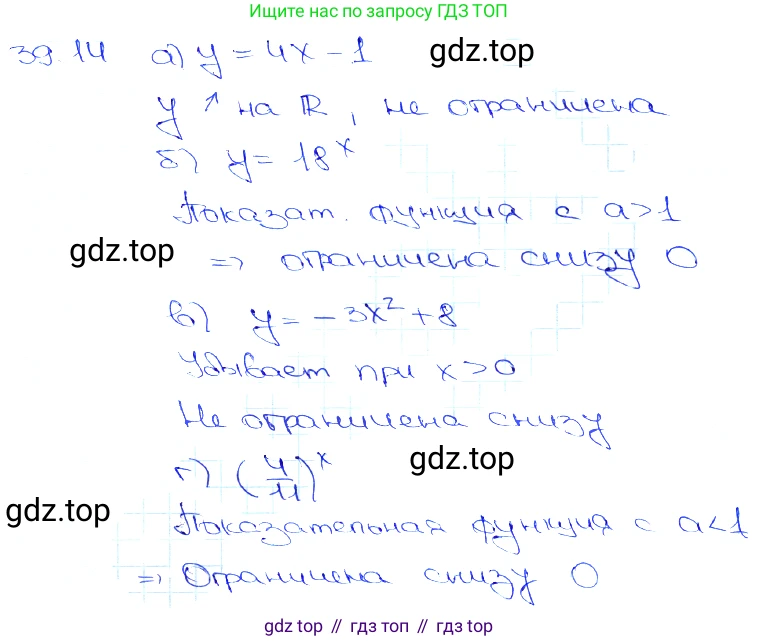 Ищите нас по запросу ГДЗ ТОП
39.14 а) y = 4x - 1 gdz.top
y ↑ на ℝ, не ограничена
б) y = 18^x
Показат. функция с a>1
gdz.top => ограничена снизу 0
в) y = -3x² + 8
Убывает при x>0
Не ограничена снизу
г) (4/11)^x gdz.top
gdz.top
Показательная функция с a<1
=> Ограничена снизу 0
gdz top // гдз топ // gdz top